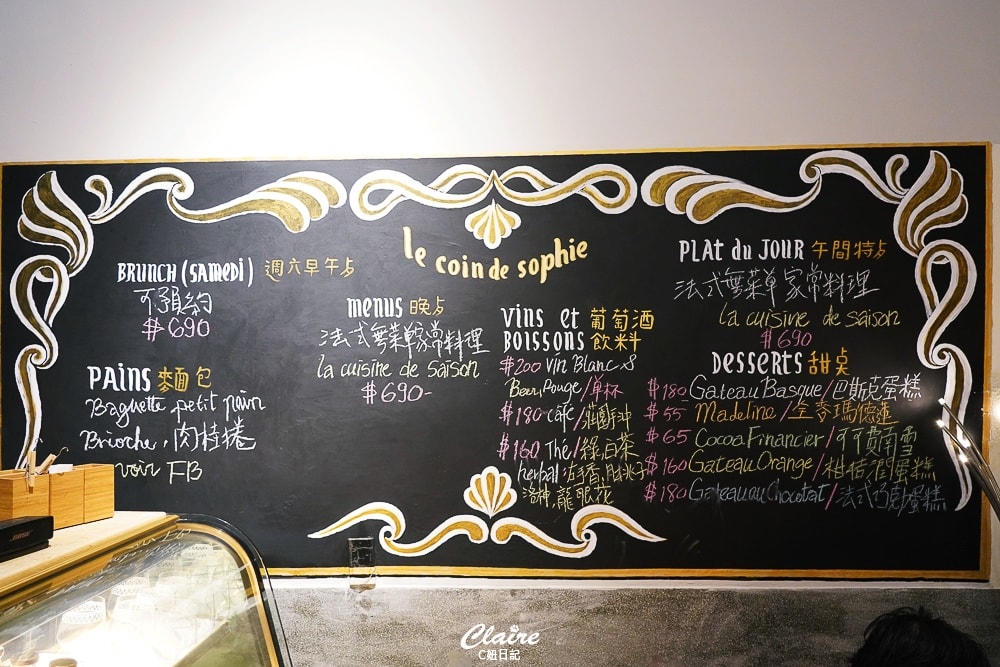 le coin de sophie
BRUNCH (SAMEDI) 週六早午点
可預約
$690
PAINS 麵包
Baguette, petit pain
Brioche, 肉桂捲
voir FB
MENUS 晚点
法式無菜單家常料理
la cuisine de saison
$690-
Vins et 葡萄酒
BOISSONS 飲料
$200 Vin Blanc &
Beer, Rouge/單杯
$180 café/莊園手沖
$160 Thé/綠.白茶
herbal
洛神,龍眼花
PLAT du JOUR 午間特点
法式無菜單家常料理
la cuisine de saison
$690
DESSERTS 甜点
$180 Gateau Basque/巴斯克蛋糕
$55 Madeline/瑪德蓮
$65 Cocoa Financier/可可費南雪
$160 Gateau Orange/柑桔蛋糕
$180 Gateau au Chocolat/法式巧克力蛋糕
Claire
C妞日記